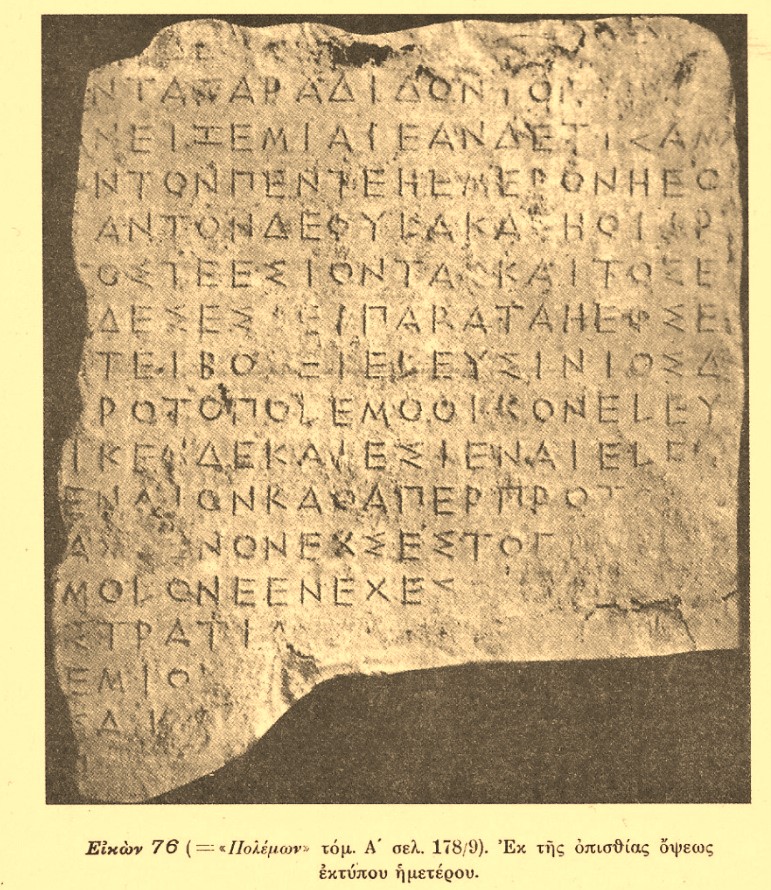 ΝΤΑΠΑΡΑΔΙΔΟΝΤΟΝ
ΝΕΙΞΕΜΙΑΙΕΑΝΔΕΤΙΣΑΜ
ΝΤΟΝΠΕΝΤΕΗΕΜΕΡΟΝΗΕΟ
ΑΝΤΟΝΔΕΟΥΒΑΚΑ ΗΟΙ Ρ
ΟΣΤΕΕΣΙΟΝΤΑΣΚΑΙΤΟΣΕ
ΔΕΣΕΣ ΕΙΠΑΡΑΤΑΗΕΦΣΕ
ΤΕΙΒΟ ΞΙΕLΕΥΣΙΝΙΟΣΔ
ΡΟΤΟΠΟLΕΜΟΟΙΚΟΝΕLΕΥ
ΙΚΕ ΔΕΚΑ ΕΣΙΕΝΑΙΕLΕ
ΕΝΑΙΟΝΚΑΘΑΠΕΡΠΡΟΤ
Α ΝΟΝΕΧΣΕΣΤΟ
ΜΟLΟΝΕΕΝΕΧΕΣ
ΣΤΡΑΤΙ
ΕΜΙΟ
Δ
Εἰκὼν 76 (=«Πολέμων» τόμ. Α΄ σελ. 178/9). Ἐκ τῆς ὀπισθίας ὄψεως
ἐκτύπου ἡμετέρου.